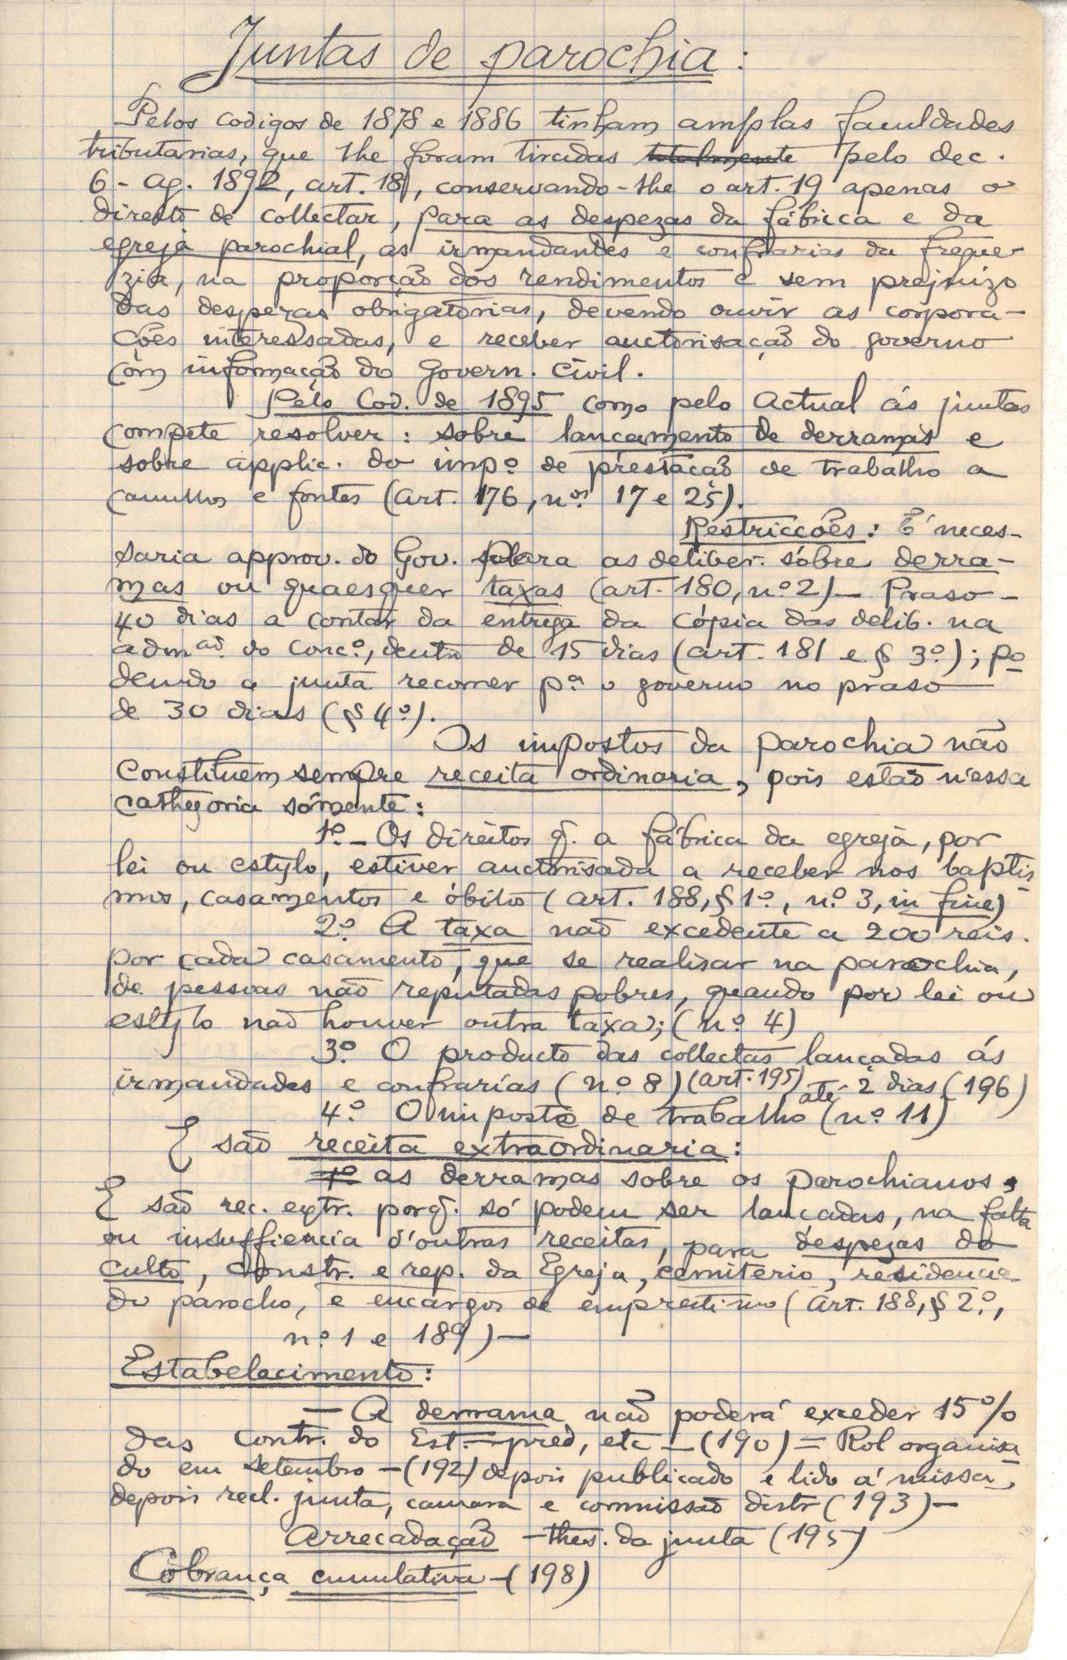 Juntas de parochia:
Pelos codigos de 1878 e 1886 tinham amplas faculdades
tributarias, que lhe foram tiradas totalmente pelo dec.
6 - Ag. 1892, art. 18, conservando-lhe o art. 19 apenas o
direito de collectar, para as despezas da fábrica e da
egreja parochial, as irmandades e confrarias da fregue-
zia, na proporção dos rendimentos e sem prejuizo
das despezas obrigatorias, devendo ouvir as corpora-
ções interessadas, e receber auctorisação do governo
com informação do Govern. Civil.
Pelo Cod. de 1895 como pelo actual ás juntas
compete resolver: sobre lançamento de derramas e
sobre applic. do impº de prestação de trabalho a
caminhos e fontes (art. 176, nos 17 e 25).
Restricções: É neces-
saria approv. do Gov. para as deliber. sobre derra-
mas ou quaesquer taxas (art. 180, nº 2) — Praso -
40 dias a contar da entrega da cópia das delib. na
admão do Concº, dentro de 15 dias (art. 181 e § 3º); po-
dendo a junta recorrer pª o governo no praso
de 30 dias (§ 4º).
Os impostos da parochia não
constituem sempre receita ordinaria, pois estão n'essa
cathegoria sómente:
1º - Os direitos q. a fábrica da egreja, por
lei ou estylo, estiver auctorisada a receber nos baptis-
mos, casamentos e óbitos (art. 188, § 1º, nº 3, in fine)
2º A taxa não excedente a 200 reis.
por cada casamento, que se realisar na parochia,
de pessoas não reputadas pobres, quando por lei ou
estylo não houver outra taxa; (nº 4)
3º O producto das collectas lançadas ás
irmandades e confrarias (nº 8) (art. 195)
até 2 dias (196)
4º O imposto de trabalho (nº 11)
E são receita extraordinaria:
1º as derramas sobre os parochianos.
E são rec. extr. porq. só podem ser lançadas, na falta
ou insufficiencia d'outras receitas, para despezas do
culto, constr. e rep. da Egreja, cemiterio, residencia
do parocho, e encargos de emprestimo (art. 188, § 2º,
nº 1 e 189) —
Estabelecimento:
— A derrama não poderá exceder 15%
das contr. do Est. - pred, etc — (190) = Rol organisa-
do em setembro - (192) depois publicado e lido á missa,
depois recl. junta, camara e commissão distr (193) —
Arrecadação - thes. da junta (195)
Cobrança cumulativa - (198)